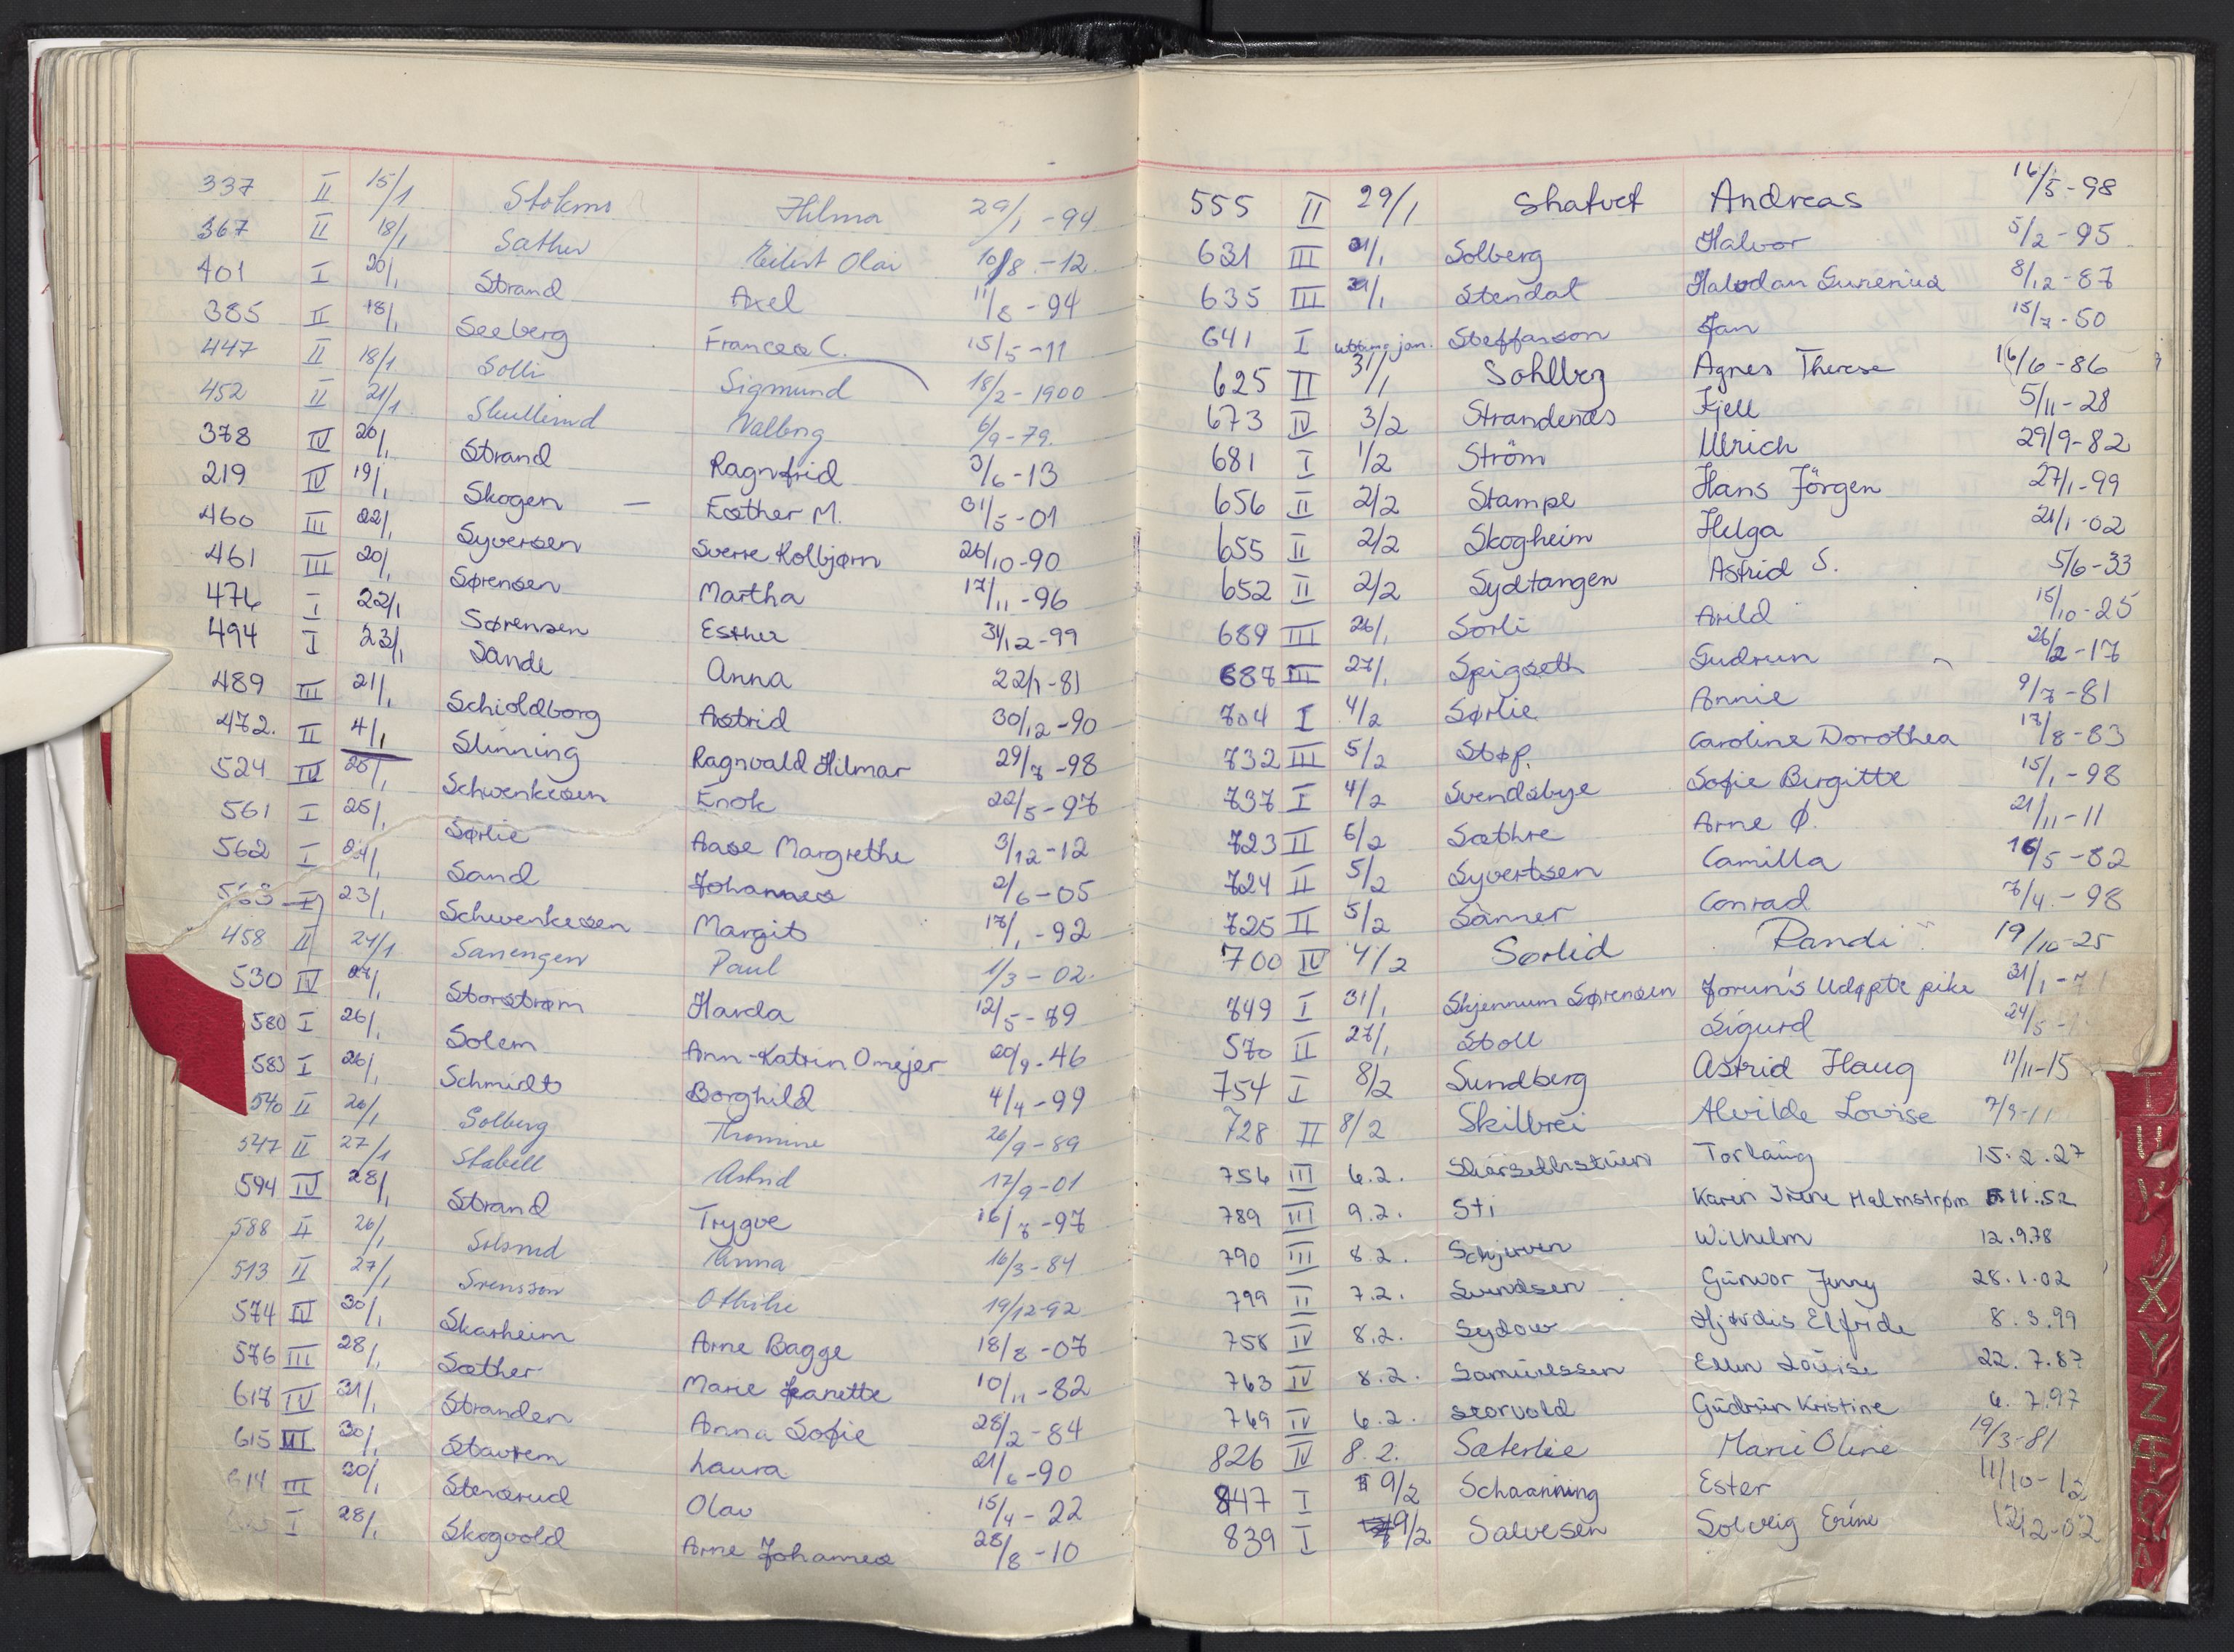 337 II 15/1 Stokmo Hilma 29/1 - 94
367 II 18/1 Sæther Eilert Olav 10/8 - 12
401 I 20/1 Strand Axel 11/8 - 94
385 II 18/1 Seeberg Frances C. 15/5 - 11
447 II 18/1 Solli Sigmund 18/2 - 1900
452 II 21/1 Skullerud Valborg 6/9 - 79.
378 IV 20/1 Strand Ragnfrid 3/6 - 13
219 IV 19/1 Skogen — Esther M. 31/5 - 01
460 III 22/1 Syversen Sverre Kolbjørn 26/10 - 90
461 III 20/1 Sørensen Martha 17/11 - 96
476 I 22/1 Sørensen Esther 31/12 - 99
494 I 23/1 Sande Anna 22/1 - 81
489 III 21/1 Schioldborg Astrid 30/12 - 90
472. II 4/1 Slinning Ragnvald Hilmar 29/7 - 98
524 IV 25/1 Schwenkesen Enok 22/5 - 97
561 I 25/1 Sørlie Aase Margrethe 3/12 - 12
562 I 24/1 Sand Johannes 2/6 - 05
563 I 23/1 Schwenkesen Margit 17/1 - 92
458 II 24/1 Sanengen Paul 1/3 - 02.
530 IV 27/1 Storstrøm Harda 12/5 - 89
580 I 26/1 Solem Ann-Katrin Omejer 20/9 - 46
583 I 26/1 Schmidt Borghild 4/4 - 99
540 II 26/1 Solberg Thomine 26/9 - 89
547 II 27/1 Stabell Astrid 17/9 - 01
594 IV 28/1 Strand Trygve 16/7 - 97
588 II 26/1 Anna 16/3 - 84
513 II 27/1 Svensson 19/12 - 92
574 IV 30/1 Skarheim Arne Bagge 18/8 - 07
576 III 28/1 Sæther Marie Jeanette 10/11 - 82
617 IV 31/1 Stranden Anna Sofie 28/2 - 84
615 III 30/1 Stavrem Laura 21/6 - 90
614 III 30/1 Stensrud Olav 15/4 - 22
I 28/1 Skogvold Arne Johannes 28/8 - 10
555 II 29/1 Skatvet Andreas 16/5 - 98
631 III 31/1 Solberg Halvor 5/2 - 95
635 III 31/1 Stendal Halvdan Surenius 8/12 - 87
641 I jan. Steffanson Jan 15/7 - 50
625 II 31/1 Sohlberg Agnes Therese 16/6 - 86
673 IV 3/2 Strandenæs Kjell 5/11 - 28
681 I 1/2 Ström Ulrich 29/9 - 82
656 II 2/2 Stampe Hans Jörgen 27/1 - 99
655 II 2/2 Skogheim Helga 21/1 - 02
652 II 2/2 Sydtangen Astrid S. 5/6 - 33
689 III 26/1 Sörli Arild 15/10 - 25
687 III 27/1 Spigseth Gudrun 26/2 - 17
704 I 4/2 Sørlie Annie 9/7 - 81
732 III 5/2 Støp. Caroline Dorothea 17/8 - 83
737 I 4/2 Svendsbye Sofie Birgitte 15/1 - 98
723 II 6/2 Sæthre Arne Ø. 21/11 - 11
724 II 5/2 Syvertsen Camilla 16/5 - 82
725 II 5/2 Sanner Conrad 7/4 - 98
700 IV 4/2 Sørlid Randi 19/10 - 25
749 I 31/1 Skjennum Sørensen Jorun's Udøpte pike 31/1 - 71
570 II 27/1 Stoll Sigurd 24/5 -
754 I 8/2 Sundberg Astrid Haug 11/11 - 15
728 II 8/2 Skilbrei Alvilde Lovise 7/9 - 11
756 III 6.2. Skarsethstuen Torlaug 15.2.27
789 III 9.2. Sti Karin Irene Malmstrøm 5.11.52
790 III 8.2. Schjerven Wilhelm 12.9.78
799 II 7.2. Svendsen Gunvor Jenny 28.1.02
758 IV 8.2. Sydow Hjørdis Elfride 8.3.99
763 IV 8.2. Samuelssen Ellen Louise 22.7.87
769 IV 6.2. Storvold Gudrun Kristine 6.7.97
826 IV 8.2. Sæterlie Marie Oline 19/3 - 81
847 I 9/2 Schaanning Ester 11/10 - 12
839 I 9/2 Salvesen Solveig Erine 12/12 - 02
U
V
X
Y
Z
Æ
Ø